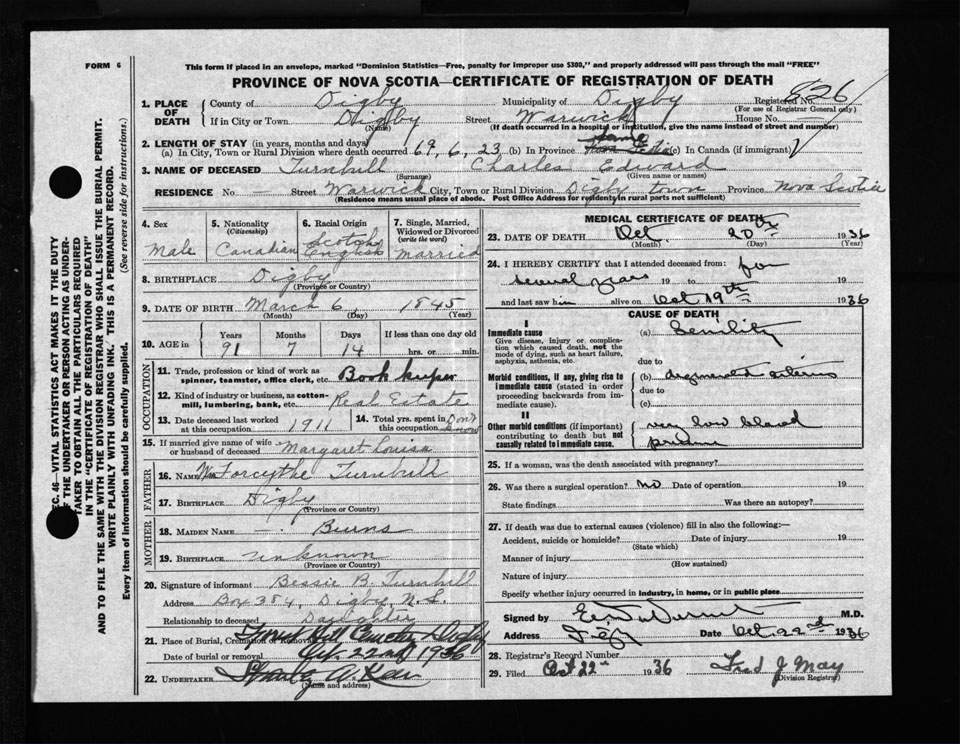 FORM 6
This form if placed in an envelope, marked "Dominion Statistics—Free, penalty for improper use $300," and properly addressed will pass through the mail "FREE"
PROVINCE OF NOVA SCOTIA—CERTIFICATE OF REGISTRATION OF DEATH
1. PLACE OF DEATH
County of Digby Municipality of Digby Registered No. 826
(For use of Registrar General only)
If in City or Town Digby Street Warwick House No. —
(Name) (If death occurred in a hospital or institution, give the name instead of street and number)
2. LENGTH OF STAY (in years, months and days)
(a) In City, Town or Rural Division where death occurred 69, 6, 23 (b) In Province same (c) In Canada (if immigrant)
3. NAME OF DECEASED Turnbull Charles Edward
(Surname) (Given name or names)
RESIDENCE No. — Street Warwick City, Town or Rural Division Digby town Province Nova Scotia
(Residence means usual place of abode. Post Office Address for residents in rural parts not sufficient)
4. Sex
Male
5. Nationality
(Citizenship)
Canadian
6. Racial Origin
Scotch
English
7. Single, Married, Widowed or Divorced
(write the word)
Married
8. BIRTHPLACE Digby
(Province or Country)
9. DATE OF BIRTH March 6, 1845
(Month) (Day) (Year)
10. AGE in Years Months Days If less than one day old
91 7 14 hrs. or min.
OCCUPATION
11. Trade, profession or kind of work as spinner, teamster, office clerk, etc. Book keeper
12. Kind of industry or business, as cotton-mill, lumbering, bank, etc. Real Estate
13. Date deceased last worked at this occupation 1911
14. Total yrs. spent in this occupation Don't know
15. If married give name of wife or husband of deceased Margaret Louisa
FATHER
16. NAME Wm Forcythe Turnbull
17. BIRTHPLACE Digby
(Province or Country)
MOTHER
18. MAIDEN NAME — Burns
19. BIRTHPLACE unknown
(Province or Country)
20. Signature of informant Bessie B. Turnbull
Address Box 384, Digby, N.S.
Relationship to deceased Daughter
21. Place of Burial, Cremation or Removal Hill Digby
Date of burial or removal Oct. 22nd 1936
22. UNDERTAKER
(Name and address)
MEDICAL CERTIFICATE OF DEATH
23. DATE OF DEATH Oct 20th 1936
(Month) (Day) (Year)
24. I HEREBY CERTIFY that I attended deceased from: for
several years 19 to 19
and last saw him alive on Oct 19th 1936
CAUSE OF DEATH
I
Immediate cause
Give disease, injury or complication which caused death, not the mode of dying, such as heart failure, asphyxia, asthenia, etc.
(a) Senility
due to
Morbid conditions, if any, giving rise to immediate cause (stated in order proceeding backwards from immediate cause).
(b)
due to
(c)
II
Other morbid conditions (if important) contributing to death but not causally related to immediate cause.
very low blood
25. If a woman, was the death associated with pregnancy?
26. Was there a surgical operation? No Date of operation 19
State findings Was there an autopsy?
27. If death was due to external causes (violence) fill in also the following:—
Accident, suicide or homicide? Date of injury 19
(State which)
Manner of injury
(How sustained)
Nature of injury
Specify whether injury occurred in Industry, in home, or in public place
Signed by M.D.
Address Date Oct. 22nd 1936
28. Registrar's Record Number
29. Filed Oct 22nd 1936 Fred J May
(Division Registrar)
SEC. 46—VITAL STATISTICS ACT MAKES IT THE DUTY
OF THE UNDERTAKER OR PERSON ACTING AS UNDER-
TAKER TO OBTAIN ALL THE PARTICULARS REQUIRED
IN THE "CERTIFICATE OF REGISTRATION OF DEATH"
AND TO FILE THE SAME WITH THE DIVISION REGISTRAR WHO SHALL ISSUE THE BURIAL PERMIT.
WRITE PLAINLY WITH UNFADING INK. THIS IS A PERMANENT RECORD.
Every item of information should be carefully supplied. (See reverse side for instructions.)